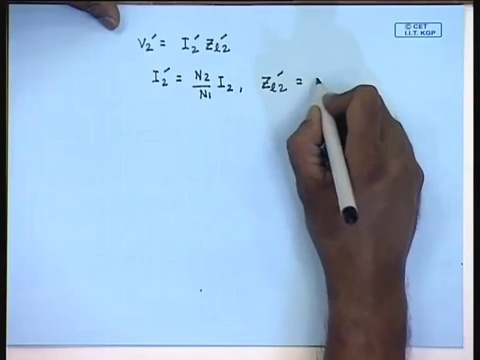 © CET
I.I.T. KGP
V₂′ = I₂′ Zℓ₂′
I₂′ = N₂/N₁ I₂, Zℓ₂′ =